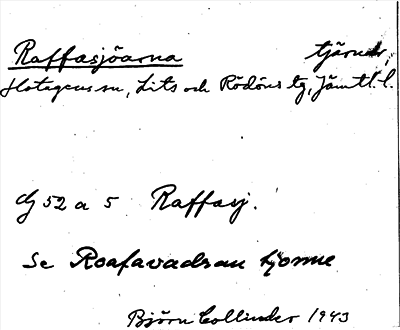 Raffasjöarna tjärnar,
Hotagens sn, Lits och Rödöns tg, Jämtl. l.
dg 52 a 5 Raffasj.
Se Roafavadsan tjonne
Björn Collinder 1943